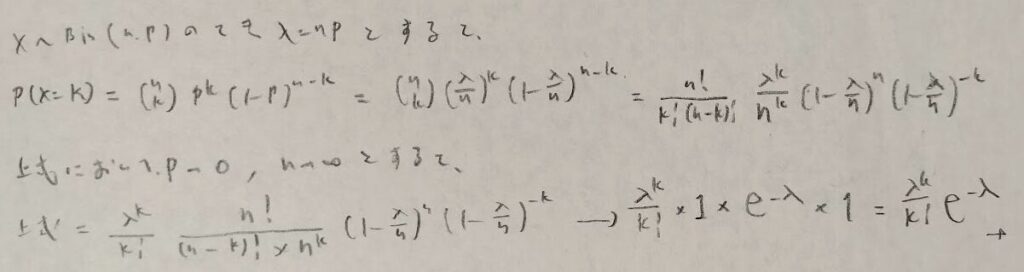 X ~ Bin (n.p) のとき λ=np とすると、
P(X=k) = (n k) p^k (1-p)^{n-k} = (n k) (λ/n)^k (1-λ/n)^{n-k} = n!/(k!(n-k)!) λ^k/n^k (1-λ/n)^n (1-λ/n)^{-k}
上式において.p→0, n→∞とすると、
上式 = λ^k/k! n!/((n-k)!×n^k) (1-λ/n)^n (1-λ/n)^{-k} → λ^k/k! × 1 × e^{-λ} × 1 = λ^k/k! e^{-λ}